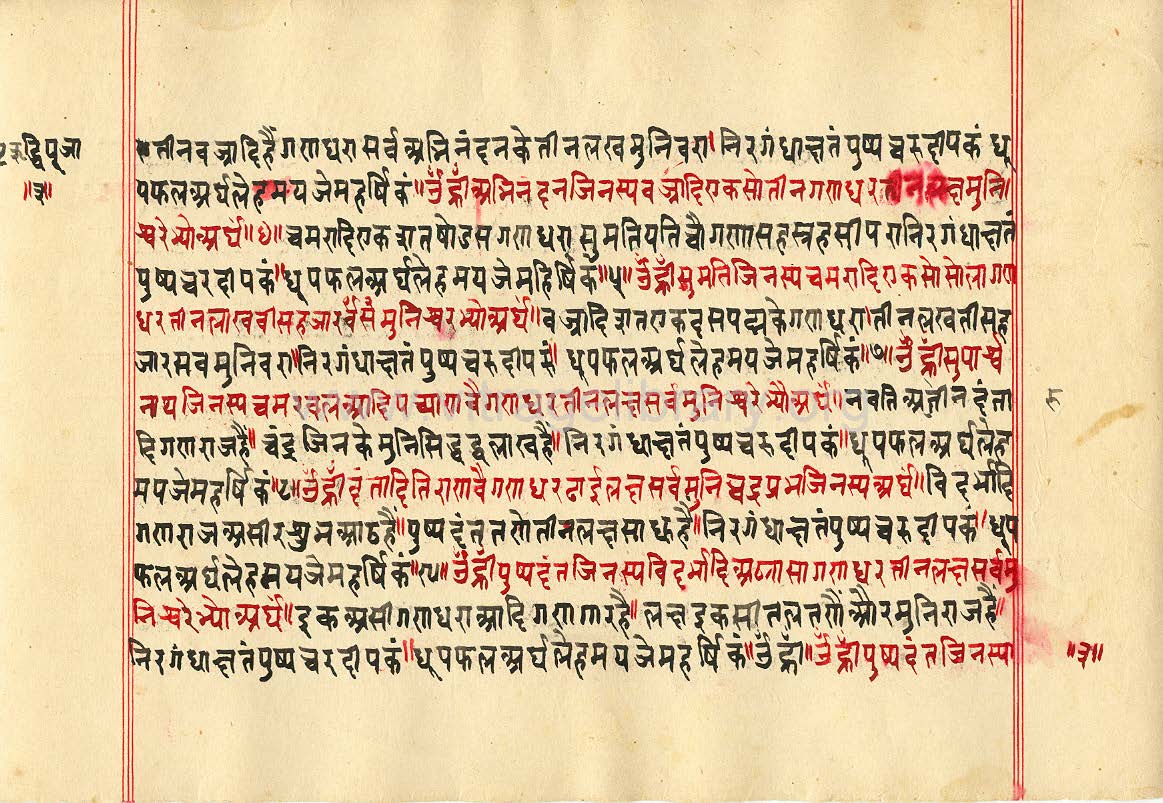 ऋद्धिपूजा
॥३॥
तीनवज्रादिहैंगणधरासर्वअभिनंदनकेतीनलखमुनिवरा।निरगंधाक्षतंपुष्पचरुदीपकंधू
पफलअर्घलेहमयजेमहर्षिकं॥उँह्रींअभिनदनजिनस्यवज्रादिएकसोतीनगणधरतीनलक्षमुनि
श्वरेभ्योअर्घं॥४॥चमरादिएकशतषोडसगणधरासुमतिपति गणसहस्रहसीपरानिरगंधाक्षतं
पुष्पचरदीपकं॥धूपफलअर्घलेहमयजेमहिर्षिकं॥५॥उँह्रींसुमतिजिनस्यचमरादिएकसोसोलागण
धरतीनलाखवीसहजारसर्वमुनिश्वरभ्योअर्घं॥वज्रादिशतएकदसपद्मकेगणधरा।तीनलखतीसह
जारसवमुनिवरा॥निरगंधाक्षतंपुष्पचरुदीपकं धूपफलअर्घलेहमयजेमहर्षिकं॥७॥उँह्रींसुपार्श्व
नाथजिनस्यचमरवलआदिपच्याणवैगणधरतीनलक्षसर्वमुनिश्वरेभ्योअर्घं॥नवतिअतीनदंता
दिगणराजहैं॥चंद्रजिनकेमुनिसिद्धद्वलाखहैं॥निरगंधाक्षतंपुष्पचरुदीपकं॥धूपफलअर्घलेह
मयजेमहर्षिकं॥८॥उँह्रींदंतादितिराणवैगणधरढाईलक्षसर्वमुनिचद्रप्रभजिनस्यअर्घं॥विदर्भादि
गणराजअसीरशुभआठहैं॥पुष्पदंततणेतीनलक्षसाधहैं॥निरगंधाक्षतंपुष्पचरुदीपकं॥धूप
फलअर्घलेहमयजेमहर्षिकं॥९॥उँह्रींपुष्पदंतजिनस्यविदर्भादिअठासीगणधरतीनलक्षसर्वमु
निश्वरेभ्योअर्घं॥इकअसीगणधराआदिगणगारहै॥लक्षइकसीतलतणैंऔरमुनिराजहैं॥
निरगंधाक्षतंपुष्पचरुदीपकं॥धूपफलअर्घलेहमयजेमहर्षिकं॥उँह्रीं॥उँह्रींपुष्पदंतजिनस्य
॥३॥